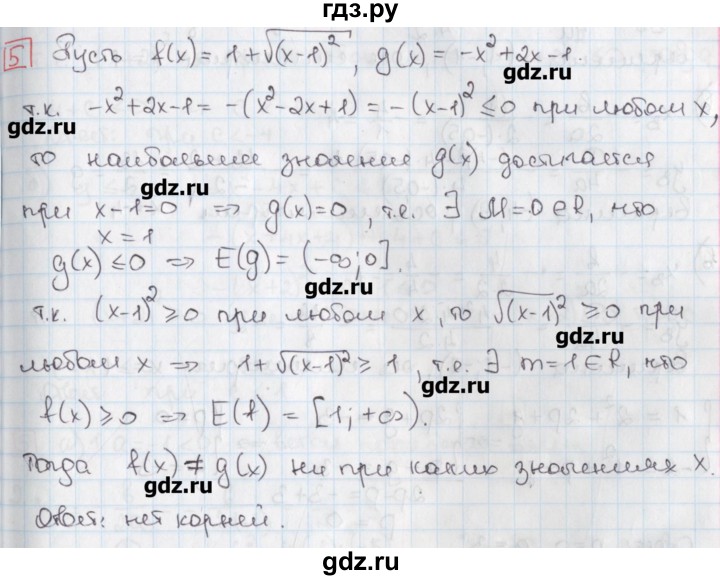 гдз.ру
5 Пусть f(x) = 1+√(x-1)², g(x) = -x²+2x-1.
gdz.ru
т.к. -x²+2x-1 = -(x²-2x+1) = -(x-1)² ≤ 0 при любом x,
gdz.ru
то наибольшее значение g(x) достигается
gdz.ru
при x-1=0 ⇒ g(x)=0, т.е. ∃ M=0∈R, что
x=1
g(x) ≤ 0 ⇒ E(g) = (-∞; 0].
gdz.ru
т.к. (x-1)² ≥ 0 при любом x, то √(x-1)² ≥ 0 при
gdz.ru
любом x ⇒ 1+√(x-1)² ≥ 1, т.е. ∃ m=1∈R, что
gdz.ru
f(x) ≥ 0 ⇒ E(f) = [1; +∞).
Тогда f(x) ≠ g(x) ни при каких значениях x.
gdz.ru gdz.ru
Ответ: нет корней.
gdz.ru